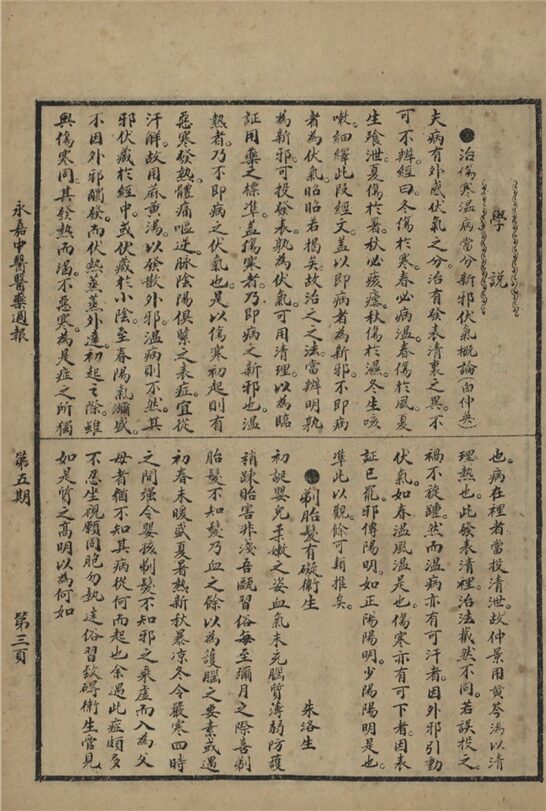 學說
治傷寒溫病當分新邪伏氣概論(白仲英)
夫病有外感伏氣之分治有發表清裏之異不
可不辨經曰冬傷於寒春必病溫春傷於風夏
生飧泄夏傷於暑秋必痎瘧秋傷於濕冬生咳
嗽細繹此段經文蓋以即病者為新邪不即病
者為伏氣昭昭若揭矣故治之之法當辨明孰
為新邪可投發表孰為伏氣可用清理以為臨
証用藥之標準蓋傷寒者乃即病之新邪也溫
熱者乃不即病之伏氣也是以傷寒初起則有
惡寒發熱體痛嘔逆脉陰陽俱緊之表症宜從
汗解故用麻黃湯以發散外邪溫病則不然其
邪伏藏於經中或伏藏於小陰至春陽氣瀰盛
不因外邪觸發而伏熱蒸蒸外達初起之際雖
與傷寒同其發熱而渴不惡寒為是症之所獨
也病在裡者當投清泄故仲景用黃芩湯以清
理熱也此發表清裡治法截然不同若誤投之
禍不旋踵然而溫病亦有可汗者因外邪引動
伏氣如春溫風溫是也傷寒亦有可下者因表
証已罷邪傳陽明如正陽陽明少陽陽明是也
準此以觀餘可類推矣
剃胎髮有礙衛生 朱洛生
初誕嬰兒柔嫩之姿血氣未充腦質薄弱防護
稍疎貽害非淺吾甌習俗每至彌月之際喜剃
胎髮不知髮乃血之餘以為護腦之要素或遇
初春未暖盛夏暑熱新秋暴凉冬令嚴寒四時
之間强令嬰孩剃髮不知邪之乘虛而入為父
母者猶不知其病從何而起也余遇此症頗多
不忍坐視願同胞勿執迷俗習致碍衛生管見
如是質之高明以為何如
永嘉中醫醫藥週報 第五期 第三頁